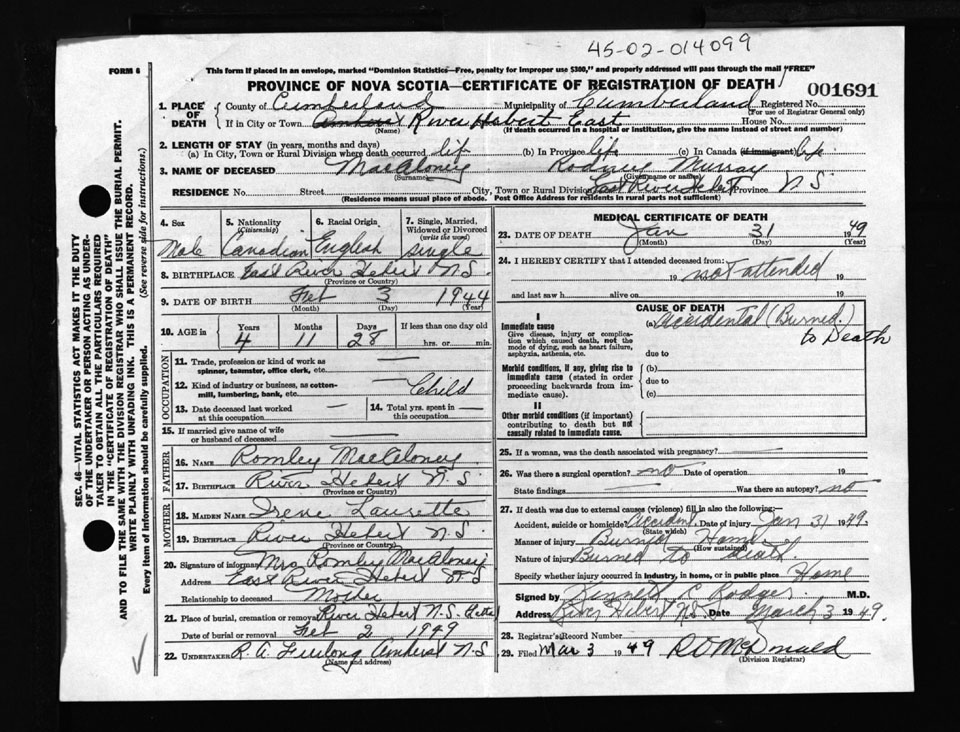 45-02-014099
FORM 6
This form if placed in an envelope, marked "Dominion Statistics—Free, penalty for improper use $300," and properly addressed will pass through the mail "FREE"
PROVINCE OF NOVA SCOTIA—CERTIFICATE OF REGISTRATION OF DEATH
001691
1. PLACE OF DEATH
County of Cumberland Municipality of Cumberland Registered No.
(For use of Registrar General only)
If in City or Town Amherst River Hebert East House No.
(Name) (If death occurred in a hospital or institution, give the name instead of street and number)
2. LENGTH OF STAY (in years, months and days)
(a) In City, Town or Rural Division where death occurred life (b) In Province life (c) In Canada (if immigrant) life
3. NAME OF DECEASED MacAloney Rodney Murray
(Surname) (Given name or names)
RESIDENCE No. Street City, Town or Rural Division East River Hebert Province N S
(Residence means usual place of abode. Post Office Address for residents in rural parts not sufficient)
4. Sex
Male
5. Nationality
(Citizenship)
Canadian
6. Racial Origin
English
7. Single, Married, Widowed or Divorced
(write the word)
Single
8. BIRTHPLACE East River Hebert N.S.
(Province or Country)
9. DATE OF BIRTH Feb 3 1944
(Month) (Day) (Year)
10. AGE in
Years Months Days If less than one day old
4 11 28 hrs. or min.
OCCUPATION
11. Trade, profession or kind of work as
spinner, teamster, office clerk, etc. —
12. Kind of industry or business, as cotton-
mill, lumbering, bank, etc. Child
13. Date deceased last worked
at this occupation —
14. Total yrs. spent in
this occupation —
15. If married give name of wife
or husband of deceased —
FATHER
16. NAME Romley MacAloney
17. BIRTHPLACE River Hebert N.S.
(Province or Country)
MOTHER
18. MAIDEN NAME Irene Laurette
19. BIRTHPLACE River Hebert N.S
(Province or Country)
20. Signature of informant Mrs Romley MacAloney
Address East River Hebert N S
Relationship to deceased Mother
21. Place of burial, cremation or removal River Hebert N.S.
Date of burial or removal Feb 2 1949
22. UNDERTAKER R. A. Furlong Amherst N.S
(Name and address)
MEDICAL CERTIFICATE OF DEATH
23. DATE OF DEATH Jan 31 1949
(Month) (Day) (Year)
24. I HEREBY CERTIFY that I attended deceased from:
not attended 19
and last saw h alive on 19
CAUSE OF DEATH
I
Immediate cause
Give disease, injury or complication which caused death, not the mode of dying, such as heart failure, asphyxia, asthenia, etc.
(a) Accidental (Burned)
to Death
due to
Morbid conditions, if any, giving rise to immediate cause (stated in order proceeding backwards from immediate cause).
(b)
due to
(c)
II
Other morbid conditions (if important) contributing to death but not causally related to immediate cause.
25. If a woman, was the death associated with pregnancy? —
26. Was there a surgical operation? no Date of operation 19
State findings — Was there an autopsy? no
27. If death was due to external causes (violence) fill in also the following:
Accident, suicide or homicide? Accident Date of injury Jan 31 1949.
(State which)
Manner of injury Burned Home
(How sustained)
Nature of injury Burned to death.
Specify whether injury occurred in industry, in home, or in public place Home
Signed by Kenneth C Rodger M.D.
Address River Hebert N.S. Date March 3 1949.
28. Registrar's Record Number
29. Filed Mar 3 1949 R O McDonald
(Division Registrar)
SEC. 46—VITAL STATISTICS ACT MAKES IT THE DUTY
OF THE UNDERTAKER OR PERSON ACTING AS UNDER-
TAKER TO OBTAIN ALL THE PARTICULARS REQUIRED
IN THE "CERTIFICATE OF REGISTRATION OF DEATH"
AND TO FILE THE SAME WITH THE DIVISION REGISTRAR WHO SHALL ISSUE THE BURIAL PERMIT.
WRITE PLAINLY WITH UNFADING INK. THIS IS A PERMANENT RECORD.
Every item of information should be carefully supplied. (See reverse side for instructions.)